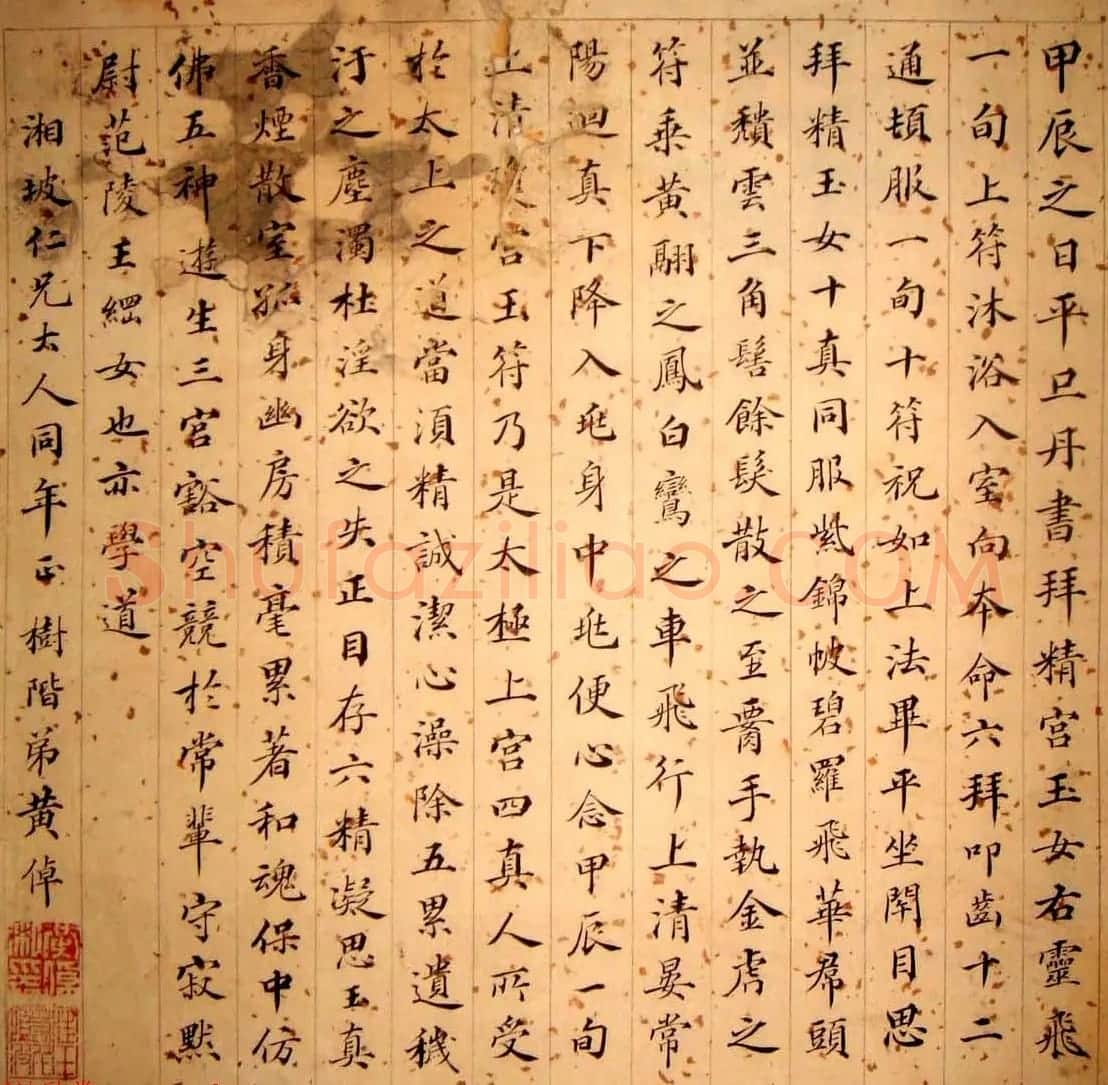 甲辰之日平旦丹書拜精宮玉女右靈飛
一旬上符沐浴入室向本命六拜叩齒十二
通頓服一旬十符祝如上法畢平坐閉目思
拜精玉女十真同服紫錦帔碧羅飛華帬頭
並穨雲三角髻餘髮散之至胷手執金虎之
符乗黃翮之鳳白鸞之車飛行上清晏常
陽迴真下降入兆身中兆便心念甲辰一旬
上清瓊宮玉符乃是太極上宮四真人所受
於太上之道當須精誠潔心澡除五累遺穢
汙之塵濁杜淫欲之失正目存六精凝思玉真
香煙散室孤身幽房積毫累著和魂保中仿
佛五神遊生三宮豁空競於常輩守寂默
尉范陵王綱女也亦學道
湘坡仁兄太人同年正樹階弟黃倬
Shufaziliao.COM